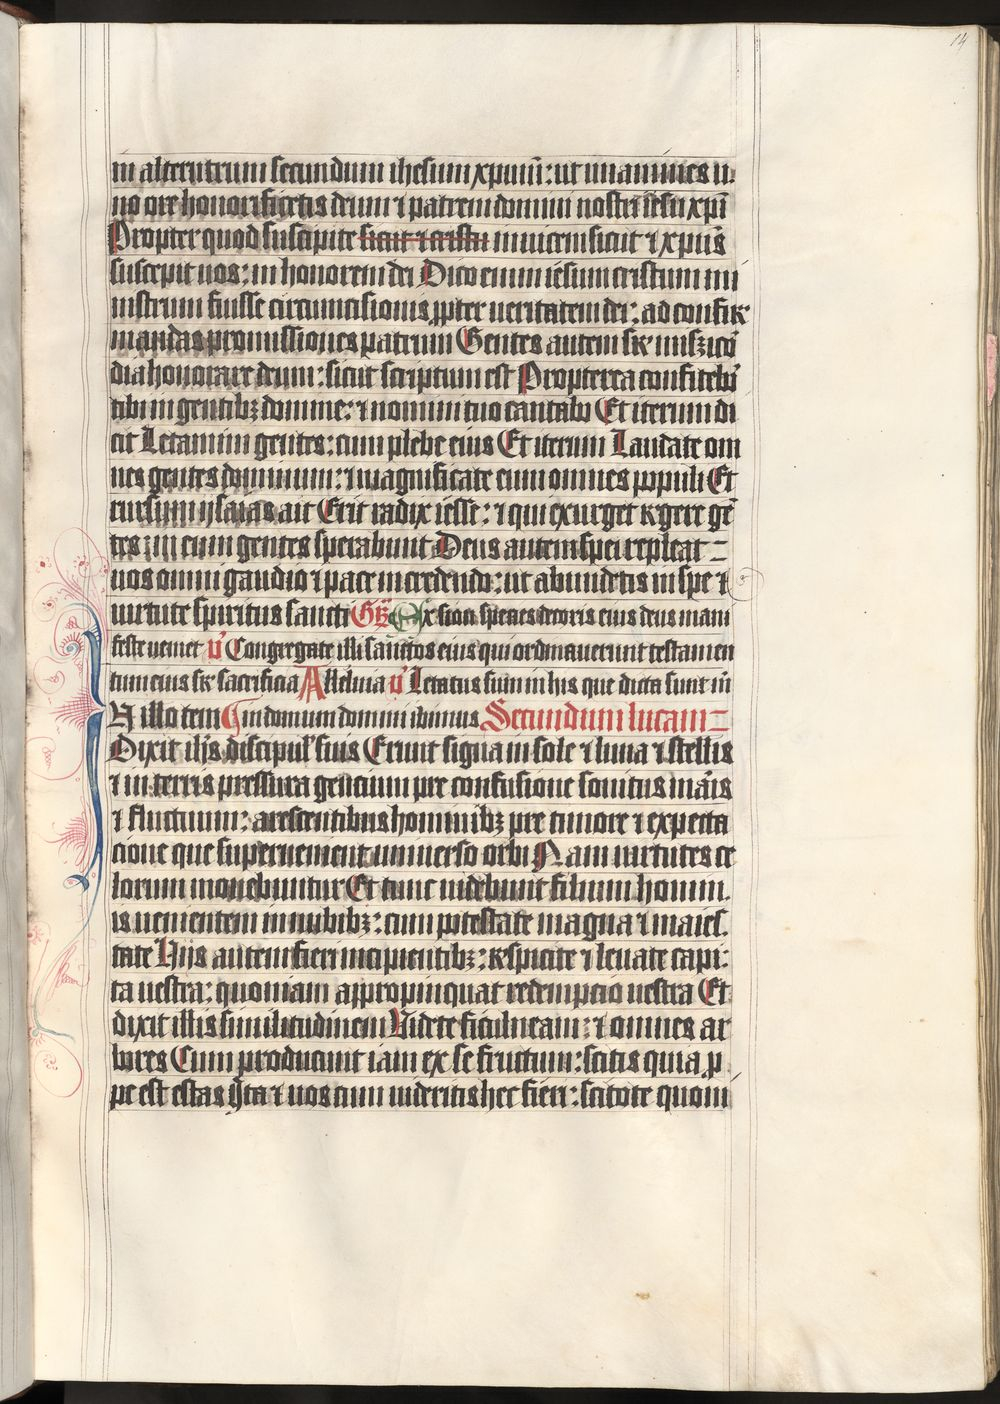 14
in alterutrum secundum ihesum xpum̄: ut unanimes u-
no ore honorificetis deum ⁊ patrem domini nostri iesu xp̄i
Propter quod suscipite sicut ⁊ cristu inuicem sicut ⁊ xpūs
suscepit uos: in honorem dei Dico enim iesum cristum mi
nistrum fuisse circumcisionis ꝓpter ueritatem dei: ad confir
mandas promissiones patrum Gentes autem sr̄ misꝫicō
dia honorare deum: sicut scriptum est Propterea confitebr̄
tibi in gentibꝫ domine: ⁊ nomini tuo cantabo Et iterum di
cit Letamini gentes: cum plebe eius Et iterum Laudate om
nes gentes dominum: ⁊ magnificate eum omnes populi Et
rursum ysaias ait Erit radix iesse: ⁊ qui exurget regere gē
tes: in eum gentes sperabunt Deus autem spei repleat
uos omni gaudio ⁊ pace in credendo: ut abundetis in spe ⁊
uirtute spiritus sancti Gꝫ Ex sion species decoris eius deus mani
feste ueniet v̄ Congregate illi sanctos eius qui ordinauerunt testamen
tum eius sr̄ sacrificia Alleluia v̄ Letatus sum in his que dicta sunt m̄
N illo tem in domum domini ibimus Secundum lucam
Dixit ih̄s discipulꝭ suis Erunt signa in sole ⁊ luna ⁊ stellis
⁊ in terris pressura gencium pre confusione sonitus mar̄is
⁊ fluctuum: arescentibus hominibꝫ pre timore ⁊ expecta
cione que superuenient uniuerso orbi Nam uirtutes ce
lorum mouebuntur Et tunc uidebunt filium homin-
is uenientem in nubibꝫ: cum potestate magna ⁊ maies-
tate Hijs autem fieri incipientibꝫ: respicite ⁊ leuate capi-
ta uestra: quoniam appropinquat redempcio uestra Et
dixit illis similitudinem Videte ficulneam: ⁊ omnes ar
bores Cum producunt iam ex se fructum: scitis quia ꝓ
pe est estas Ita ⁊ uos cum uideritis hec fieri: scitote quoni